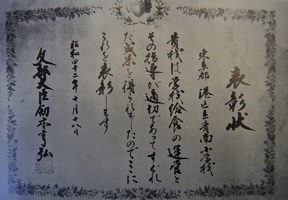 表彰状
東京都 港区立青南小学校
貴校は学校給食の運営と
その指導が適切であつてすぐれ
た成果を得られましたのでここに
これを表彰します
昭和四十二年十月十八日
文部大臣 剱木亨弘